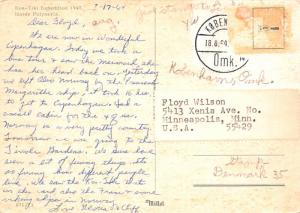 Kon-Tiki Expedition 1947
2-17-64
Dear Floyd, aug
We are now in Wonderful
Copenhagen. Today we took a
bus tour & saw the Mermaid, she
has her head back on. Yesterday we
left Oslo Norway on the
Margarethe ship. It took 16 hrs.
to get to Copenhagen. Had a small
cabin for the 4 of us.
Norway is a very pretty country.
Tomorrow we are going to the
Tivoli Gardens. We sure have
seen a lot of funny things. It's
so funny how different people
live. We saw the Kon-Tiki that
in this card also the Fram & some
viking ships in Norway.
Love
KØBENHAVN
18.8.64
Omk.
Københavns Omk.
Floyd Wilson
5413 Xenia Ave. No.
Minneapolis, Minn.
U.S.A. 55429
Denmark 35
Mittet